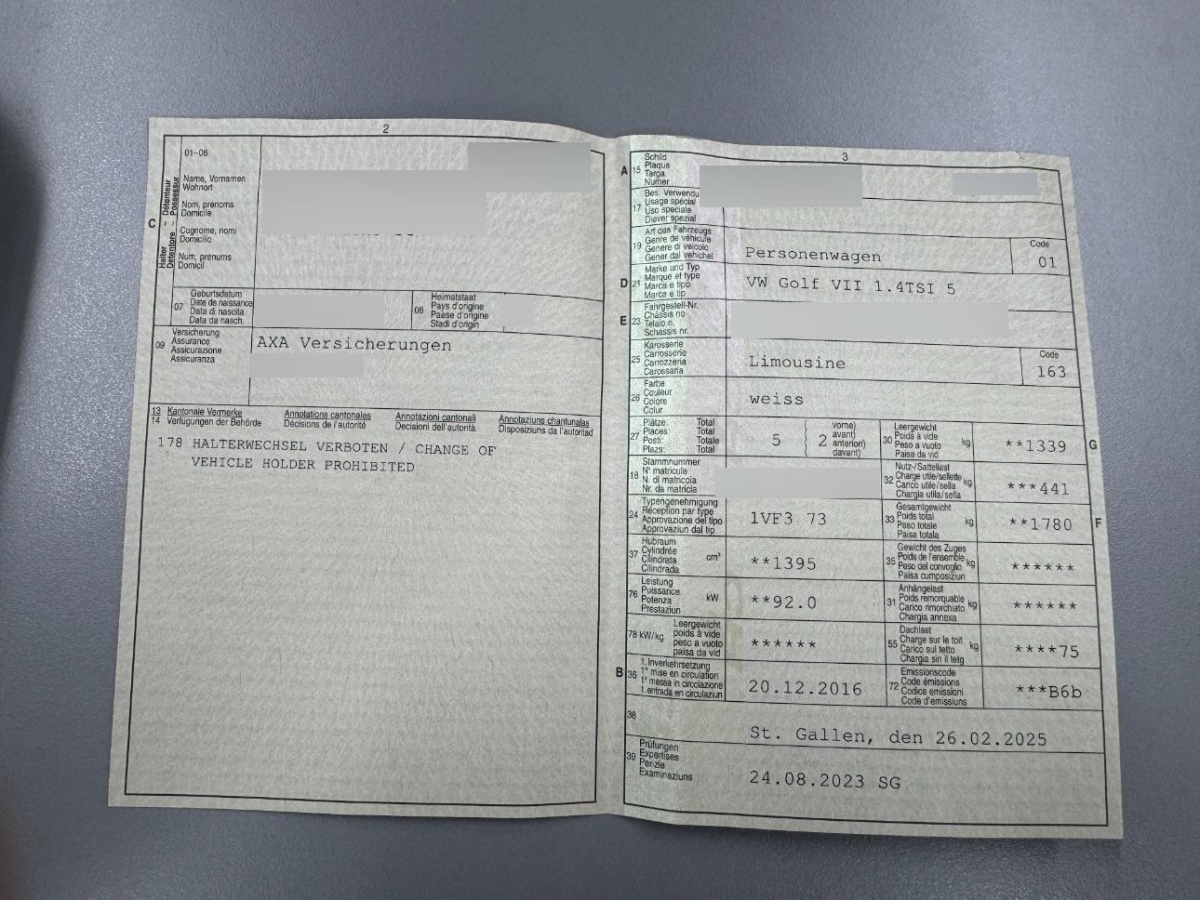 2
01-06
C
Halter Détenteur
Detentore Possessur
Name, Vornamen
Wohnort
Nom, prénoms
Domicile
Cognome, nomi
Domicilio
Num, prenums
Domicil
07
Geburtsdatum
Date de naissance
Data di nascita
Data da nasch.
08
Heimatstaat
Pays d'origine
Paese d'origine
Stadi d'origin
09
Versicherung
Assurance
Assicurazione
Assicuranza
AXA Versicherungen
13 Kantonale Vermerke Annotations cantonales Annotazioni cantonali Annotaziuns chantunalas
14 Verfügungen der Behörde Décisions de l'autorité Decisioni dell'autorità Disposiziuns da l'autoritad
178 HALTERWECHSEL VERBOTEN / CHANGE OF
VEHICLE HOLDER PROHIBITED
3
A 15
Schild
Plaque
Targa
Numer
17
Bes. Verwendu
Usage spécial
Uso speciale
Diever spezial
19
Art des Fahrzeugs
Genre de véhicule
Genere di veicolo
Gener dal vehichel
Personenwagen
Code
01
D 21
Marke und Typ
Marque et type
Marca e tipo
Marca e tip
VW Golf VII 1.4TSI 5
E 23
Fahrgestell-Nr.
Châssis no
Telaio n.
Schassis nr.
25
Karosserie
Carrosserie
Carrozzeria
Carossaria
Limousine
Code
163
26
Farbe
Couleur
Colore
Colur
weiss
27
Plätze: Total
Places: Total
Posti: Totale
Plazs: Total
5
2
vorne)
avant)
anteriori)
davant)
30
Leergewicht
Poids à vide
Peso a vuoto
Paisa da vid
kg
**1339
G
18
Stammnummer
N° matricule
N. di matricola
Nr. da matricla
32
Nutz-/Sattellast
Charge utile/sellette
Carico utile/sella
Chargia utila/sella
kg
***441
24
Typengenehmigung
Réception par type
Approvazione del tipo
Approvaziun dal tip
1VF3 73
33
Gesamtgewicht
Poids total
Peso totale
Paisa totala
kg
**1780
F
37
Hubraum
Cylindrée
Cilindrata
Cilindrada
cm³
**1395
35
Gewicht des Zuges
Poids de l'ensemble
Peso del convoglio
Paisa cumposiziun
kg
******
76
Leistung
Puissance
Potenza
Prestaziun
kW
**92.0
31
Anhängelast
Poids remorquable
Carico rimorchiato
Chargia annexa
kg
******
78 kW/kg
Leergewicht
poids à vide
peso a vuoto
paisa da vid
******
55
Dachlast
Charge sur le toit
Carico sul tetto
Chargia sin il tetg
kg
****75
B 36
1. Inverkehrsetzung
1re mise en circulation
1a messa in circolazione
1. entrada en circulaziun
20.12.2016
72
Emissionscode
Code émissions
Codice emissioni
Code d'emissiuns
***B6b
38
St. Gallen, den 26.02.2025
39
Prüfungen
Expertises
Perizie
Examinaziuns
24.08.2023 SG